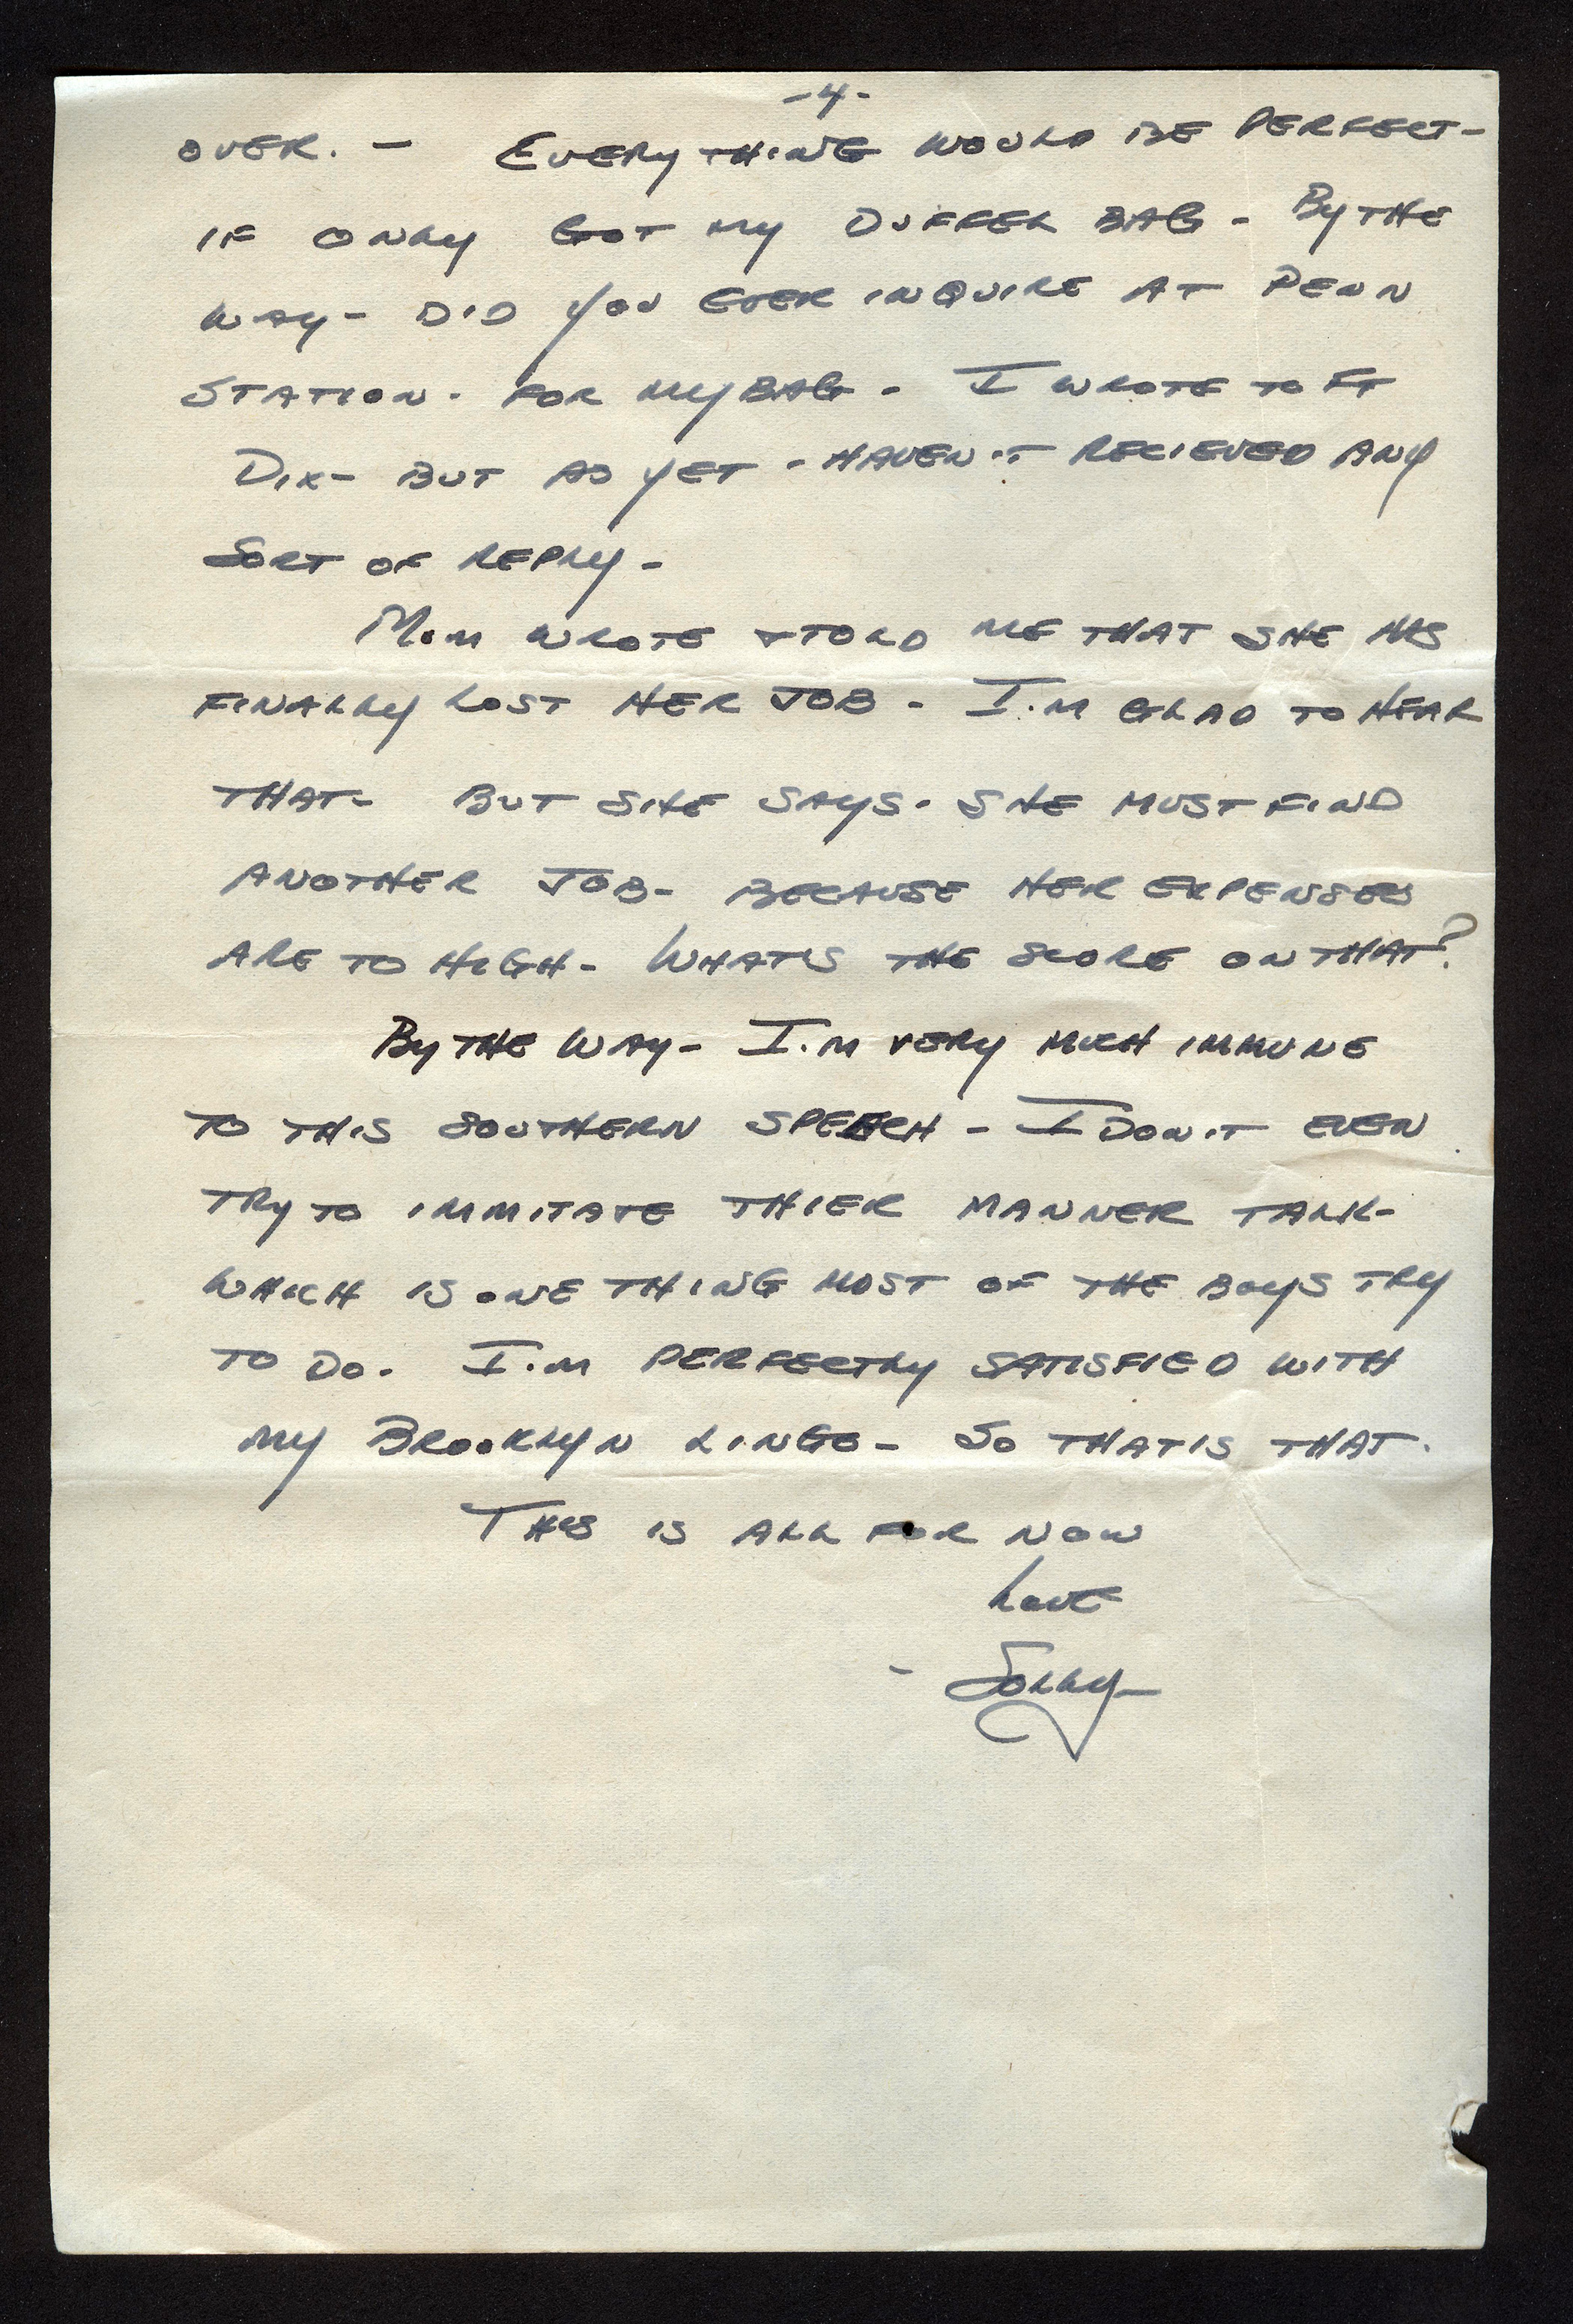 -4-
OVER. - EVERYTHING WOULD BE PERFECT-
IF ONLY GOT MY DUFFEL BAG - BY THE
WAY - DID YOU EVER INQUIRE AT PENN
STATION. FOR MY BAG - I WROTE TO FT
DIX - BUT AS YET - HAVEN'T RECIEVED ANY
SORT OF REPLY -
MOM WROTE + TOLD ME THAT SHE HAS
FINALLY LOST HER JOB - I'M GLAD TO HEAR
THAT - BUT SHE SAYS - SHE MUST FIND
ANOTHER JOB - BECAUSE HER EXPENSES
ARE TO HIGH - WHAT'S THE SCORE ON THAT?
BY THE WAY - I'M VERY MUCH IMMUNE
TO THIS SOUTHERN SPEECH - I DON'T EVEN
TRY TO IMMITATE THIER MANNER TALK -
WHICH IS ONE THING MOST OF THE BOYS TRY
TO DO. I'M PERFECTLY SATISFIED WITH
MY BROOKLYN LINGO - SO THAT IS THAT.
THIS IS ALL FOR NOW
LOVE
- SOLLY -